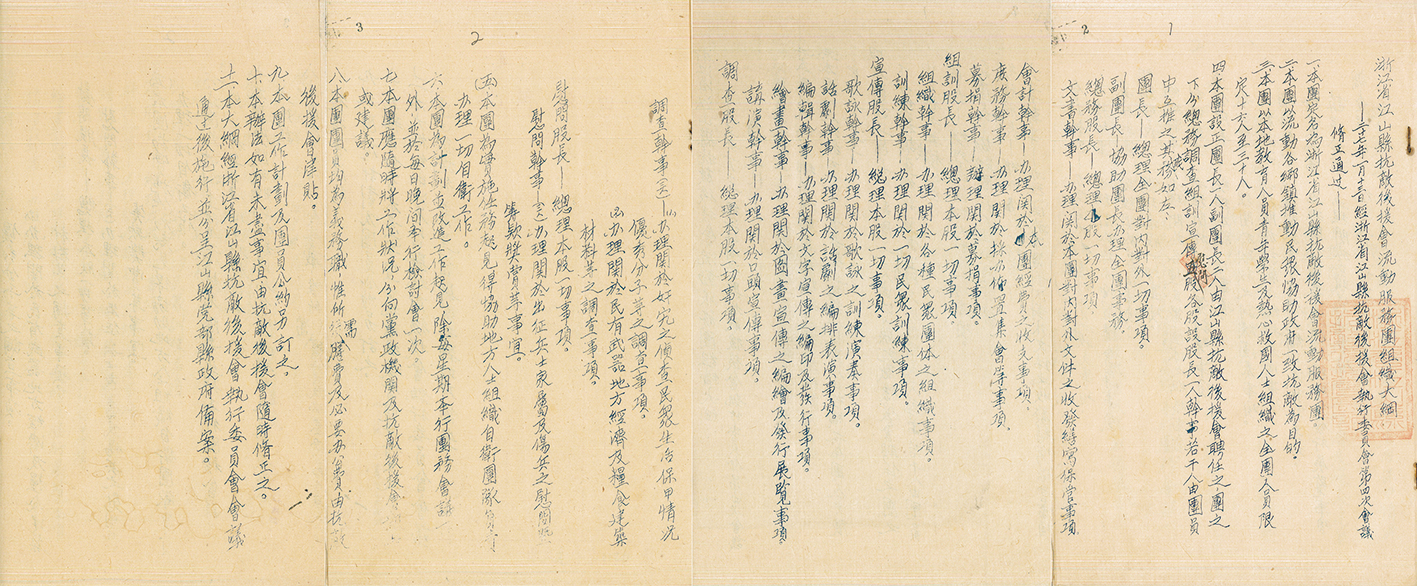 浙江省江山縣抗敵後援會流動服務團組織大綱
經浙江省江山縣抗敵後援會執行委員會第四次會議
修正通過——
一、本團定名為浙江省江山縣抗敵後援會流動服務團。
二、本團以流動各鄉鎮推動民眾協助政府一致抗敵為目的。
三、本團以本地教育人員青年學生及熱心救國人士組織之全團人員限
定十六人至三十人。
四、本團設正團長一人副團長二人由江山縣抗敵後援會聘任之團之
下分總務調查組訓宣傳慰問五股各股設股長一人幹事若干人由團員
中互推之其職掌如左：
團長——總理全團對內對外一切事項。
副團長——協助團長辦理全團事務。
總務股長——總理本股一切事項。
文書幹事——办理関於本團對內對外文件之收發繕寫保管事項
會計幹事——办理関於本團經費之收支事項。
庶務幹事——办理関於採办佈置集會等事項。
募捐幹事——辦理関於募捐事項。
組訓股長——總理本股一切事項。
組織幹事——办理関於各種民眾團体之組織事項。
訓練幹事——办理関於一切民眾訓練事項。
宣傳股長——總理本股一切事項。
歌詠幹事——办理関於歌詠之訓練演奏事項。
話劇幹事——办理関於話劇之編排表演事項。
編輯幹事——办理関於文字宣傳之編印及發行事項。
繪畫幹事——办理関於圖畫宣傳之編繪及發行展覽事項。
講演幹事——办理関於口頭宣傳事項。
調查股長——總理本股一切事項。
調查幹事(二人)——(一)办理関於奸宄之偵查民眾生活保甲情况
優秀分子等之調查事項。
(二)办理関於民有武器地方經濟及糧食建築
材料等之調查事項。
慰問股長——總理本股一切事項。
慰問幹事——办理関於出征兵士家屬及傷兵之慰問
籌款獎賞等事宜。
五、本團為實施任務起見得協助地方人士組織自衛團隊
办理一切自衛工作。
六、本團為計劃並改進工作起見除每星期奉行團務會議
外並於每日晚间奉行檢討會一次。
七、本團應隨時將工作狀況分向黨政機関及抗敵後援會
或建議。
八、本團團員均為義務職惟所需膳費及必要办公費由抗敵
後援會津貼。
九、本團工作計劃及團員公約另訂之。
十、本辦法如有未盡事宜由抗敵後援會隨時修正之。
十一、本大綱經浙江省江山縣抗敵後援會執行委員會會議
通過後施行並分呈江山縣党部縣政府備案。
1
2
2
3